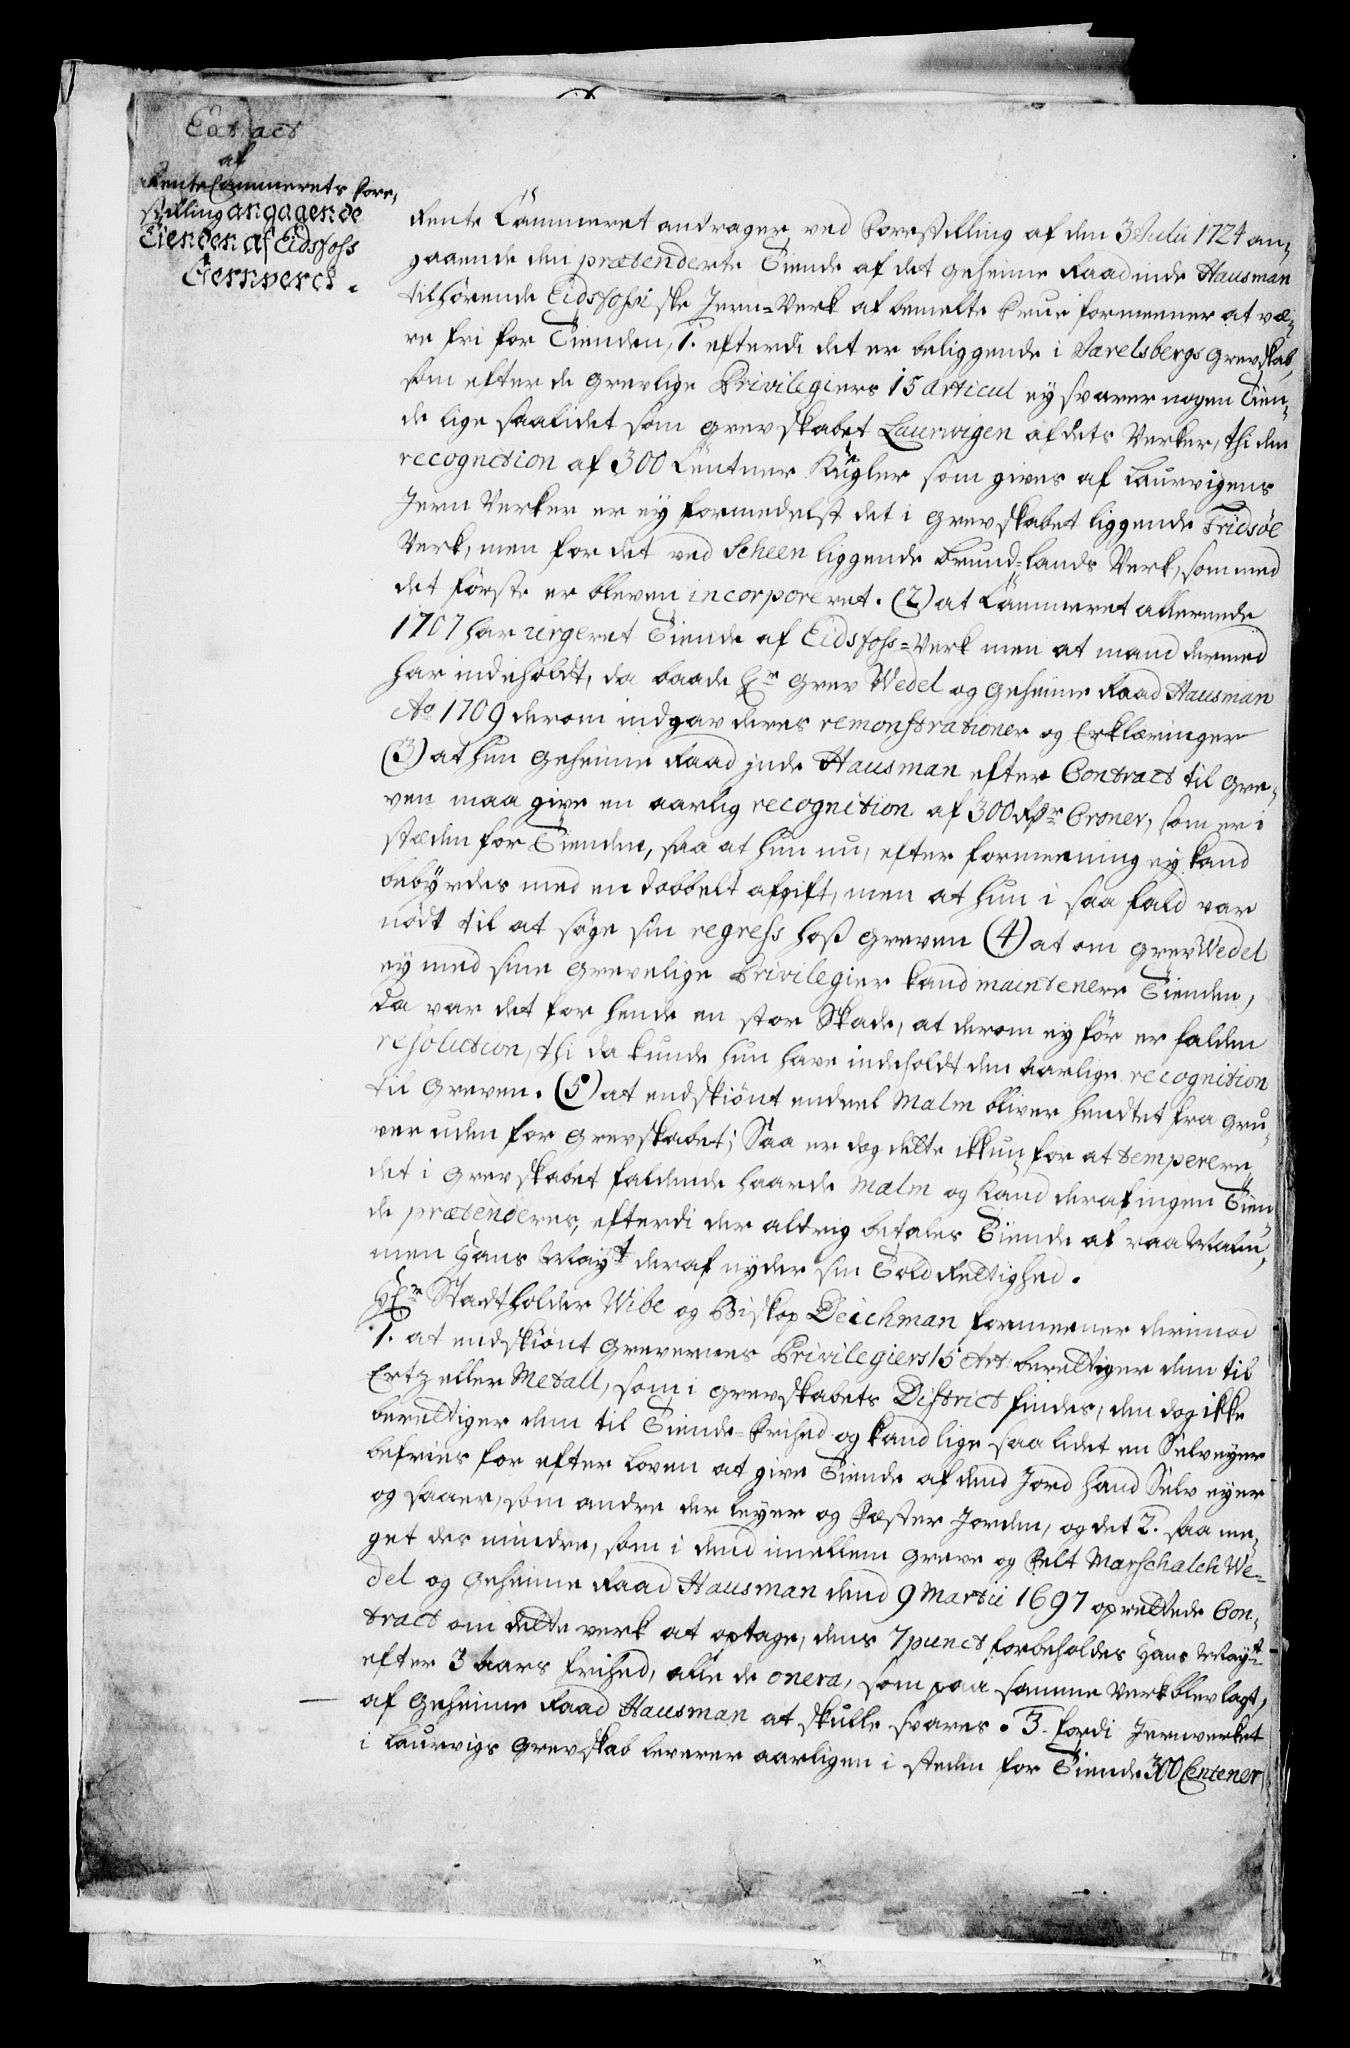 Extract
af
RenteCammerets fore-
stilling angagende
Tienden af Eidsfoss
Jernverck.
Rente Cammeret andrager ved Forestilling af den 3 Julii 1724 an-
gaaende den prætenderte Tiende af det Geheime Raadinde Hausman
tilhørende Eidsfossiske Jern-Verk at bemelte Frue formeener at væ-
re fri for Tienden, 1. efterdi det er beliggende i Jarelsbergs Grevskab,
som efter de Grevlige Privilegiers 15 Articul ey svarer nogen Tien-
de lige saalidet som Grevskabet Laurwigen af dets Verker, thi den
recognition af 300 Centner Kugler som gives af Laurvigens
Jern Verker er ey formedelst det i Grevskabet liggende Fridsöe
Verk, men for det ved Scheen liggende Brund-lands Verk, som med
det förste er bleven incorporeret. (2) at Cammeret allerede
1707 har urgeret Tiende af Eidsfoss-Verk men at mand dermed
har indeholdt, da baade Hr Grev Wedel og Geheime Raad Hausman
Ao 1709 derom indgav deres remonstrationer og Erklæringer
(3) at hun Geheime Raadinde Hausman efter Contract til Gre-
ven maa give en aarlig recognition af 300 Rdr Croner, som er i
stæden for Tienden, saa at hun nu, efter formeening ey kand
bebyrdes med en dobbelt afgift, men at hun i saa fald var
nödt til at söge sin regress hoss Greven (4) at om Grev Wedel
ey med sine Grevelige Privilegier kand maintenere Tienden,
da var det for hende en stor Skade, at derom ey för er falden
resolution, thi da kunde hun have indeholdt den aarlige recognition
til Greven. (5) at endskiönt endeel Malm bliver hendtet fra Gru-
ver uden for Grevskabet; Saa er dog dette ikkun for at temperere
det i Grevskabet faldende haarde Malm og kand deraf ingen Tien-
de prætenderes, efterdi der aldrig betales Tiende af raa Malm,
men Hans Mayt deraf nyder sin Told Rettighed.
Hr Stadtholder Wibe og Biskop Deichman formeener derimod
1. at endskiönt Grevernes Privilegiers 15 Art: berettiger dem til
Ertz eller Metall, som i Grevskabets District findes, den dog ikke
berettiger dem til Tiende-Frihed og kand lige saa lidet en Selveyer
befries for efter Loven at give Tiende af dend Jord hand Selv eyer
og saaer, som andre der leyer og Fæster Jorden, og det 2. saa me-
get des mindre, som i dend imellem Greve og Felt Marschalch We-
del og Geheime Raad Hausman dend 9 Martii 1697 oprettede Con-
tract om dette verk at optage, dens 7 punct forbeholdes Hans Mayt
efter 3 Aars frihed, alle de onera, som paa samme Verk blev lagt,
af Geheime Raad Hausman at skulle svares. 3. fordi Jernverket
i Laurvigs Grevskab leverer aarligen i steden for Tiende 300 Centener